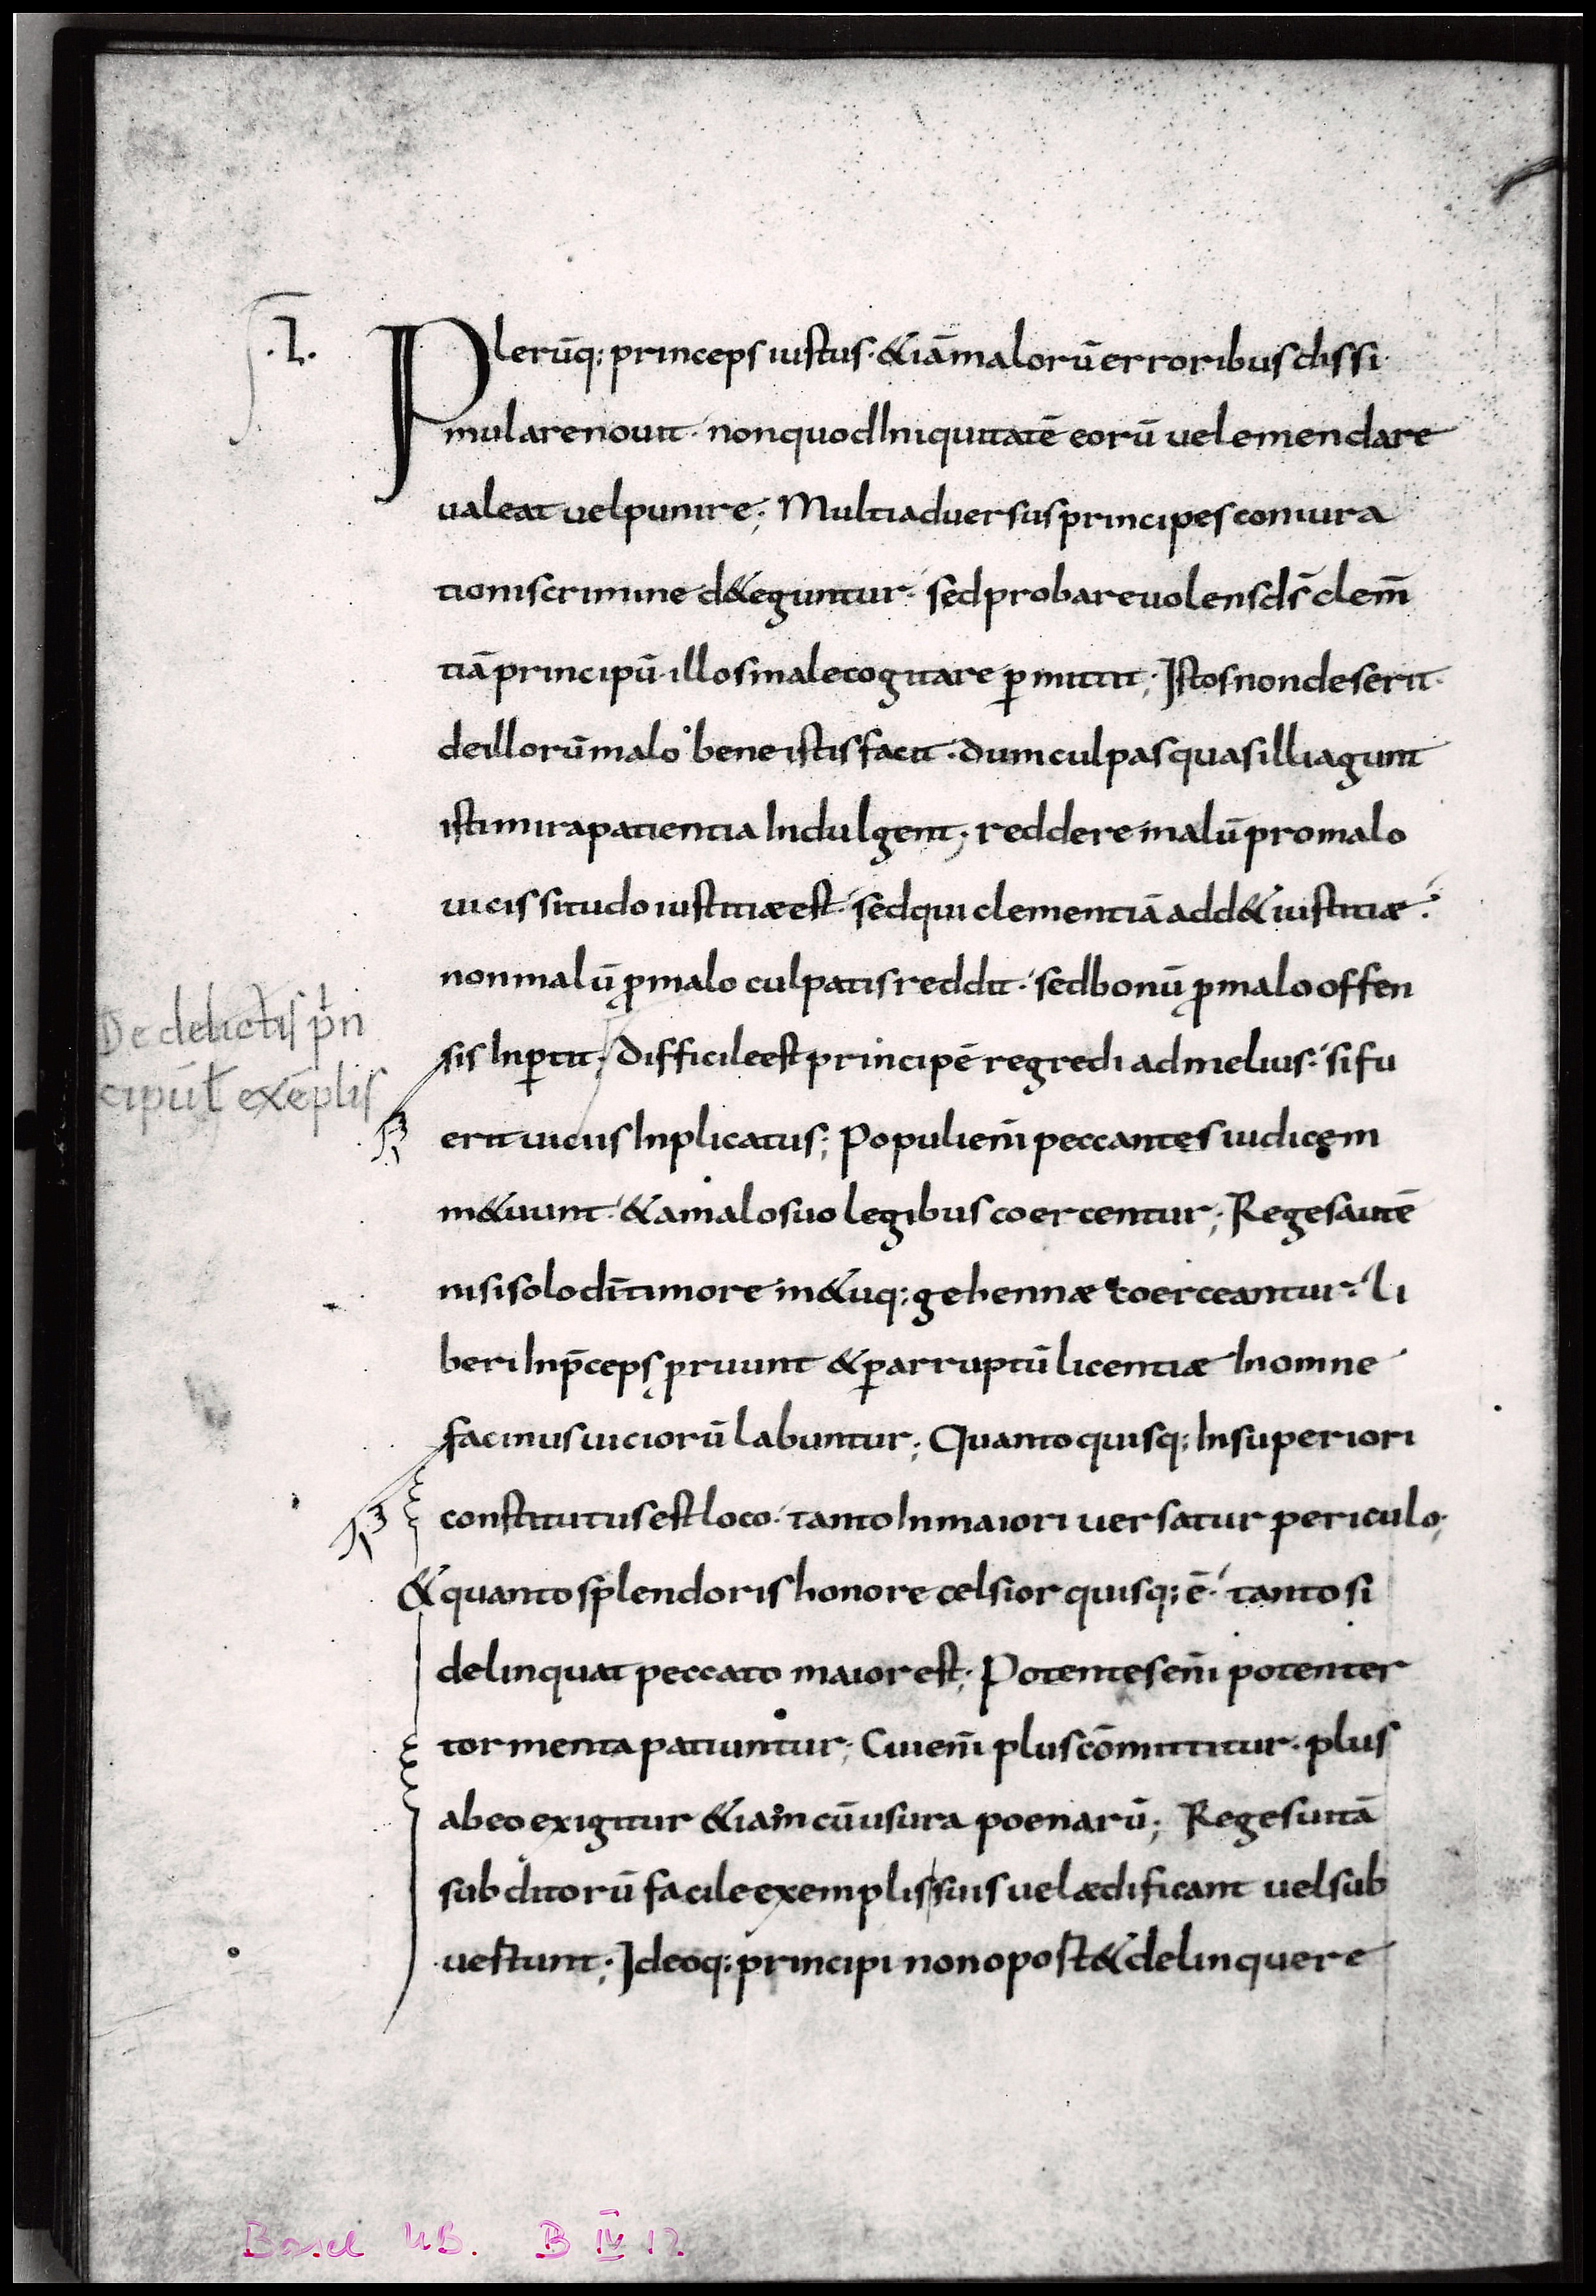 .L.
Plerūq; princeps iustus · &iā malorū erroribus dissi
mulare nouit · non quod Iniquitatē eorū uel emendare
ualeat uel punire; Multi aduersus principes coniura
tionis crimine d&eguntur · sed probare uolens ds̄ clem̄
tiā principū · illos male cogitare ꝑmittit; Istos non deserit ·
de illorū malo bene istis facit · dum culpas quas illi agunt
isti mira patientia Indulgent; reddere malū pro malo
uicissitudo iustitiæ est · sed qui clementiā add& iustitiæ ·
non malū ꝓ malo culpatis reddit · sed bonū ꝓ malo offen
sis Inꝑtit · Difficile est principē regredi ad melius · si fu
De delictis prin
cipū l exēplis
erit uiciis Inplicatus; Populi eni̅ peccantes iudicem
m&uunt · &a malo suo legibus coercentur; Reges autē
nisi solo dī timore m&uq; gehennæ coerceantur · li
beri In p̄ceps ꝓruunt &ꝑ arruptū licentiæ In omne
facinus uiciorū labuntur; Quanto quisq; In superiori
constitutus est loco · tanto In maiori uersatur periculo;
&quanto splendoris honore celsior quisq; ē · tanto si
delinquat peccato maior est; Potentes eni̅ potenter
tormenta patiuntur; Cui eni̅ plus cōmittitur · plus
ab eo exigitur &iam cū usura poenarū; Reges uitā
subditorū facile exemplis suis uel ædificant uel sub
uertunt; Ideoq; principi non oport& delinquere
Basel UB. B IV 12